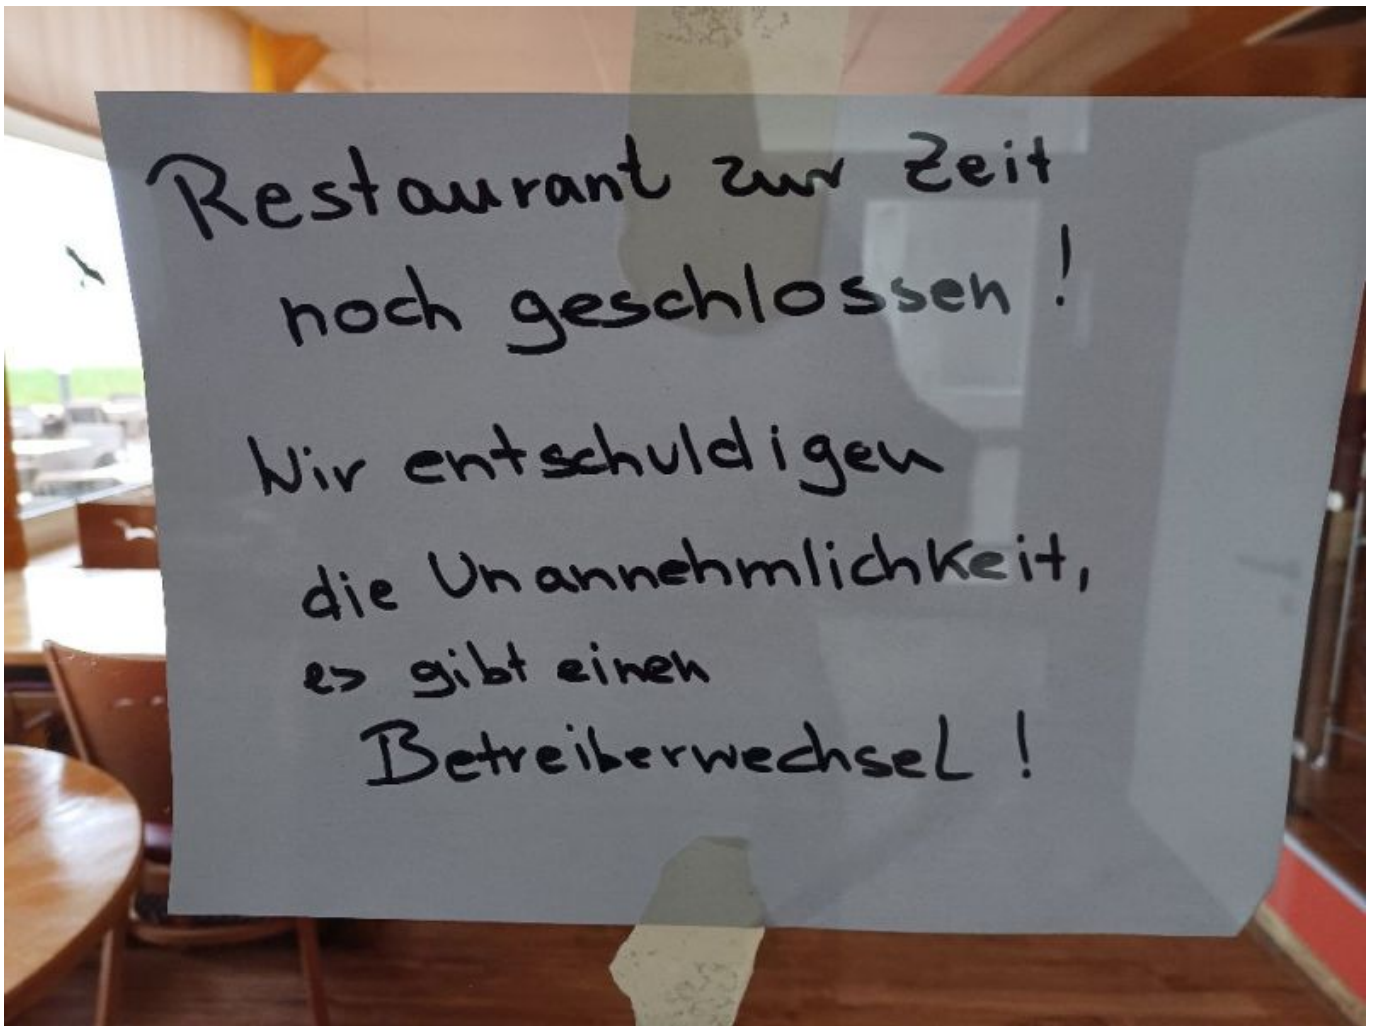 Restaurant zur Zeit
noch geschlossen !
Wir entschuldigen
die Unannehmlichkeit,
es gibt einen
Betreiberwechsel !